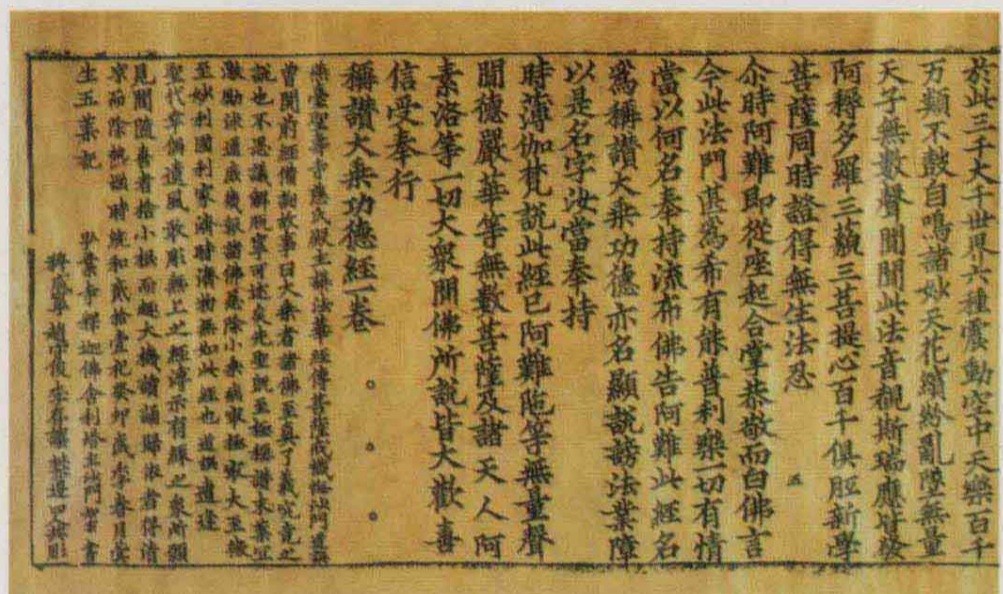 於此三千大千世界六種震動空中天樂百千
万類不鼓自鳴諸妙天花繽紛亂墜無量
天子無數聲聞聞此法音覩斯瑞應皆發
阿耨多羅三藐三菩提心百千俱胝新學
菩薩同時證得無生法忍 五
尒時阿難即從座起合掌恭敬而白佛言
今此法門甚為希有能普利樂一切有情
當以何名奉持流布佛告阿難此經名
為稱讚大乘功德亦名顯說謗法業障
以是名字汝當奉持
時薄伽梵說此經已阿難陁等無量聲
聞德嚴華等無數菩薩及諸天人阿
素洛等一切大衆聞佛所說皆大歡喜
信受奉行
稱讚大乘功德經一卷
燕臺聖壽寺慈氏殿主講法華經傳菩薩戒懺悔沙門道譔
曾閱前經備詶故事曰大乘者諸佛至真了義究竟之
說也不思議解脫寧可述矣先聖既至極稱讚末葉宜
激勵道幾報諸佛慈除小乘病
至妙利國利家濟時濟物無如此經也道譔遭逢
聖代幸偶遺風敢彫無上之經溥示有緣之衆所願
見聞隨喜者捨小根而趣大機讀誦歸依者得清
涼而除熱惱時統和貳拾壹祀癸卯歲季春月蓂
生五葉記
弘業寺釋迦佛舍利塔主沙門智雲書
穆咸寧 趙守俊 李存讓 樊遵四人共彫